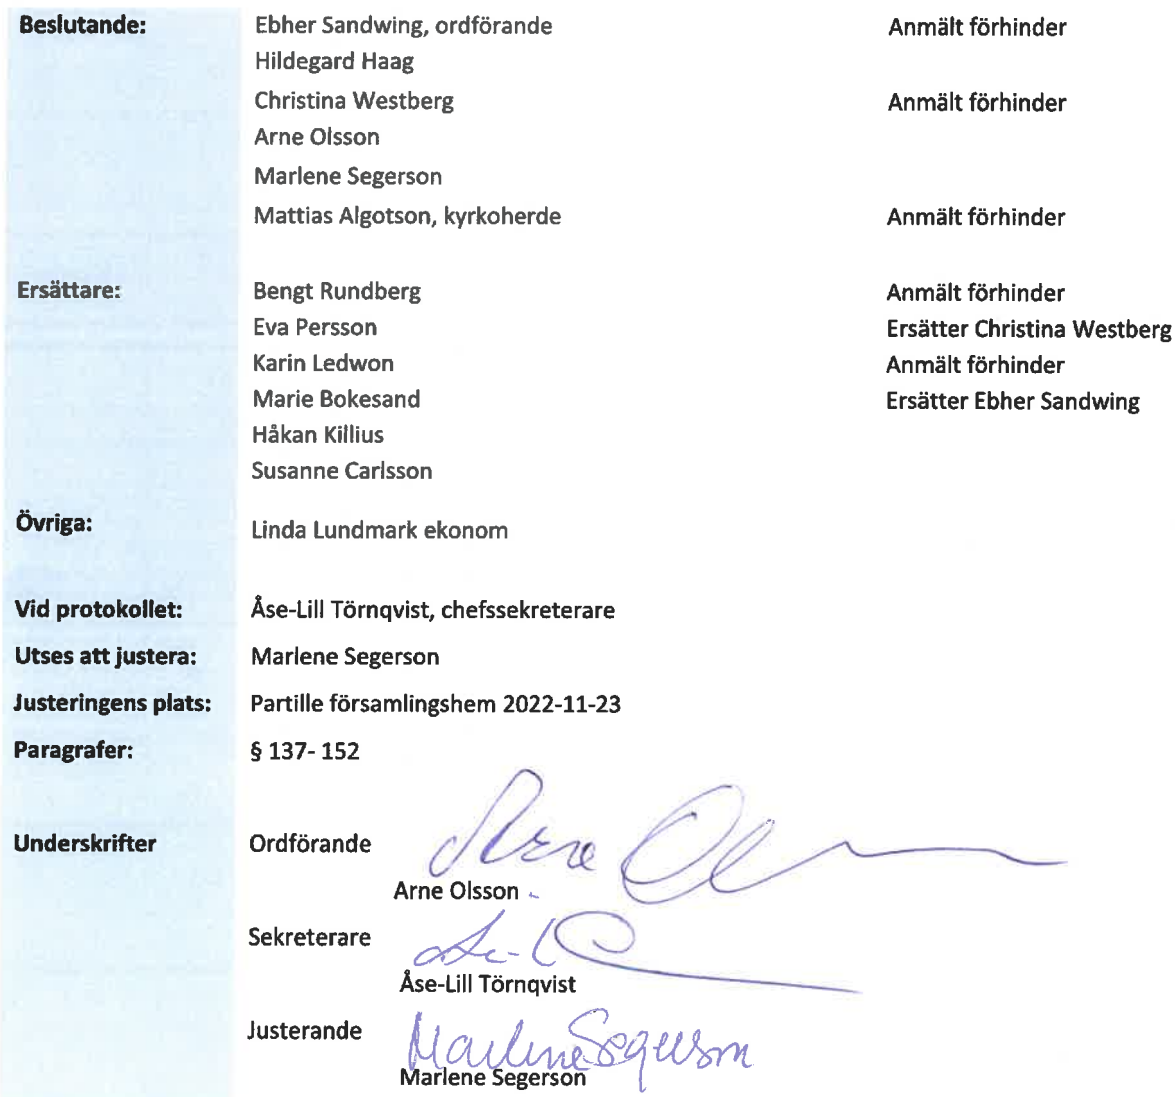 Beslutande: Ebher Sandwing, ordförande Anmält förhinder
Hildegard Haag
Christina Westberg Anmält förhinder
Arne Olsson
Marlene Segerson
Mattias Algotson, kyrkoherde Anmält förhinder
Ersättare: Bengt Rundberg Anmält förhinder
Eva Persson Ersätter Christina Westberg
Karin Ledwon Anmält förhinder
Marie Bokesand Ersätter Ebher Sandwing
Håkan Killius
Susanne Carlsson
Övriga: Linda Lundmark ekonom
Vid protokollet: Åse-Lill Törnqvist, chefssekreterare
Utses att justera: Marlene Segerson
Justeringens plats: Partille församlingshem 2022-11-23
Paragrafer: § 137- 152
Underskrifter Ordförande Arne Ol
Arne Olsson
Sekreterare
Åse-Lill Törnqvist
Justerande Marlene Segerson
Marlene Segerson